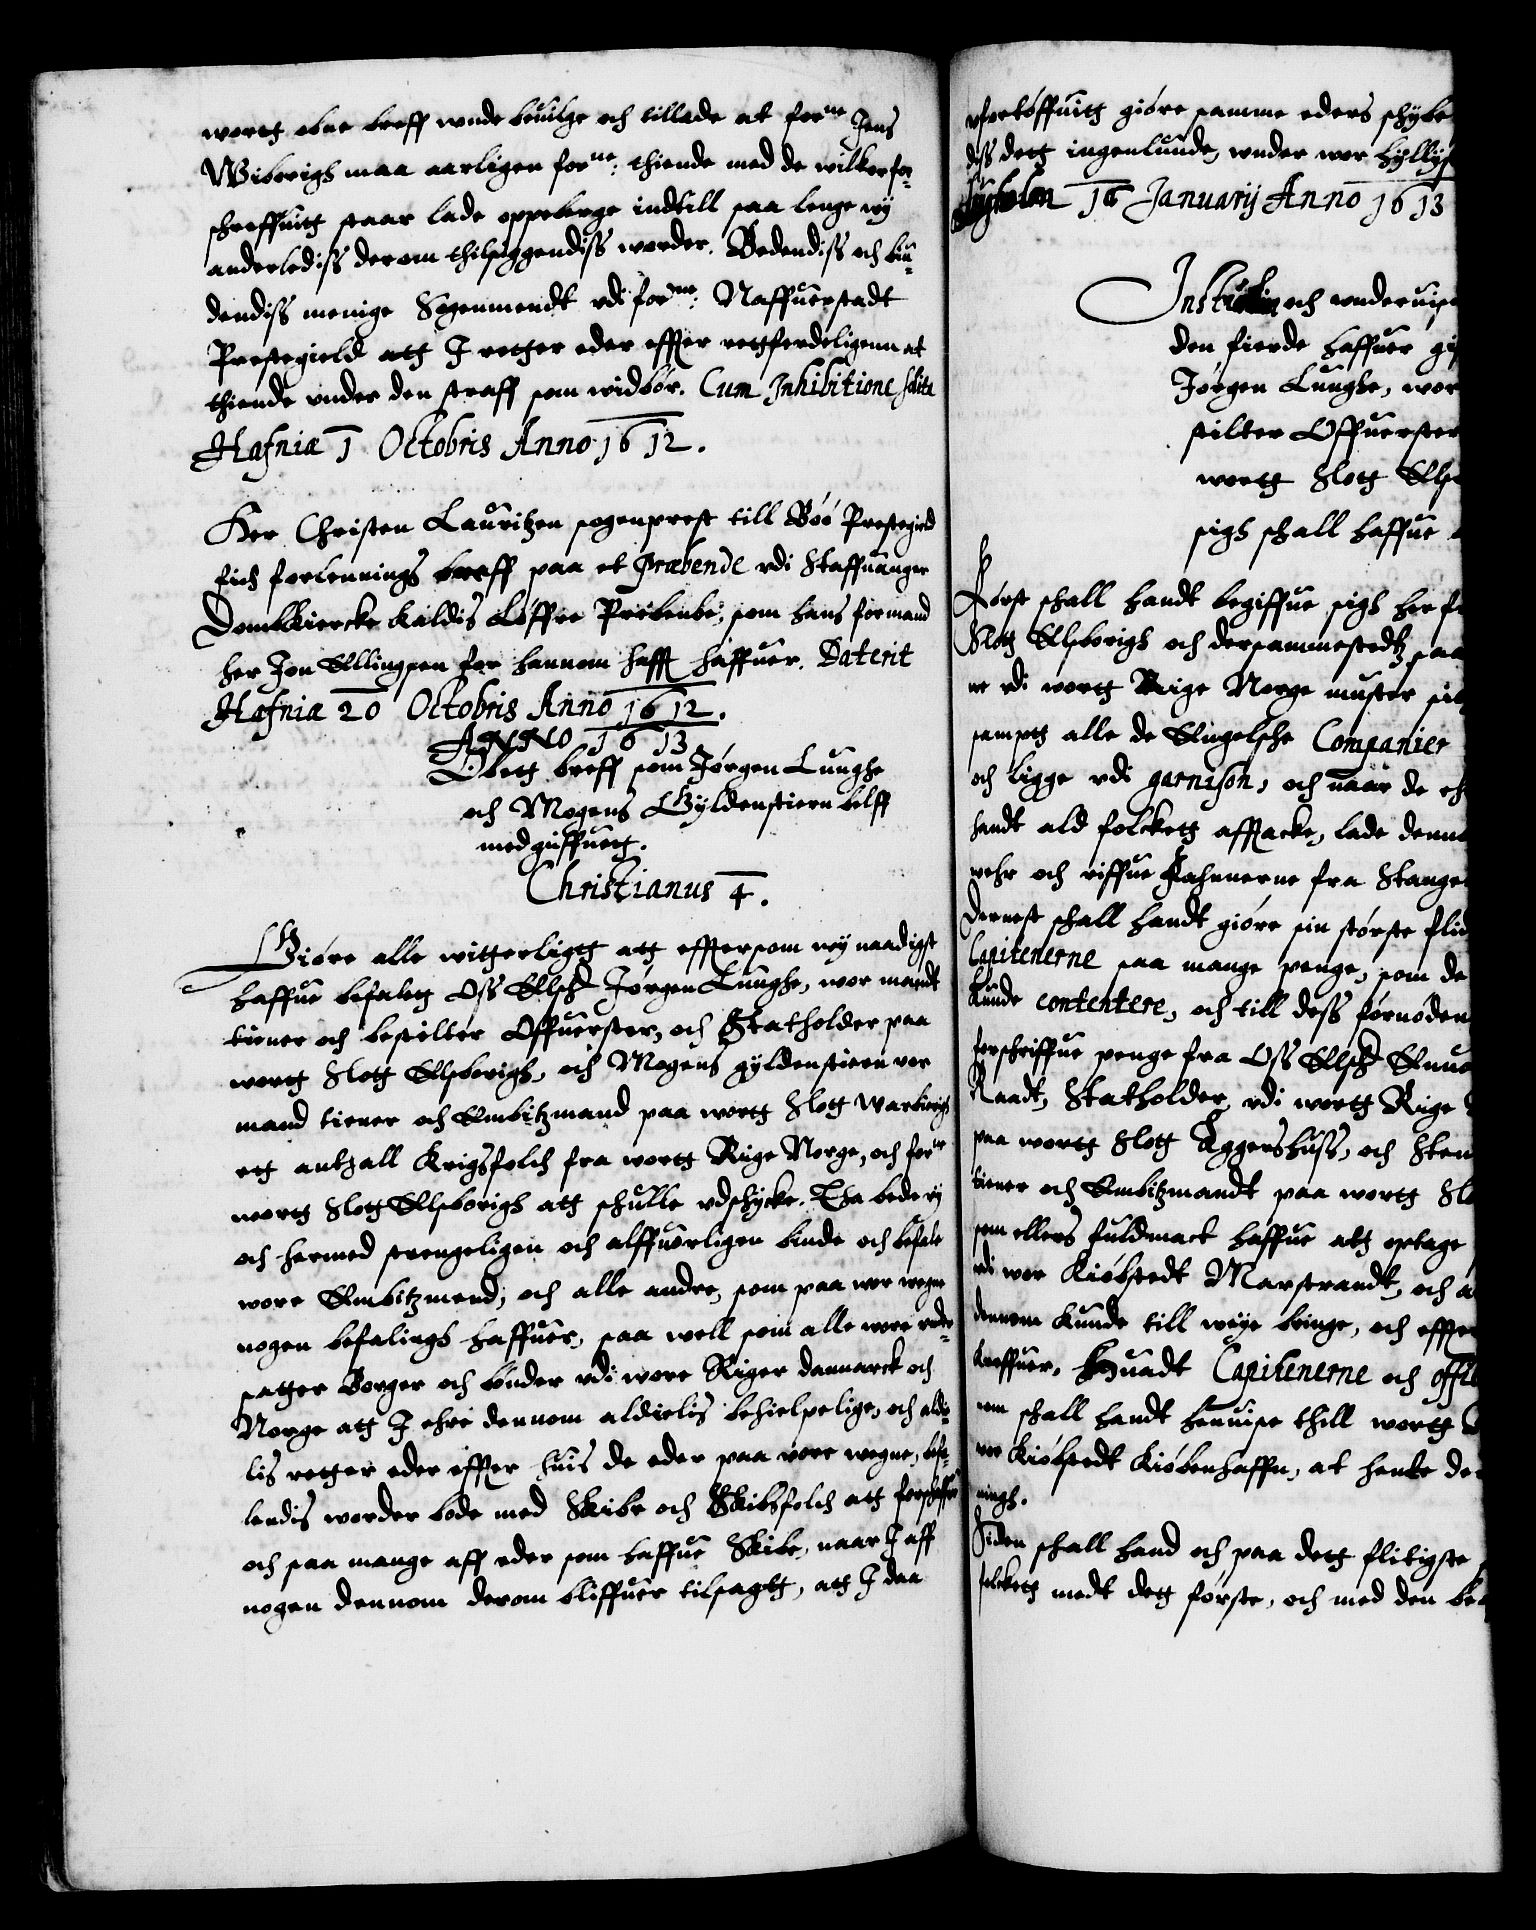 wortt obne breff wnde beuilge och tillade at forne Jens
Wiborigh maa aarligen forne: thiende med de wilkor for-
schreffuitt staar lade oppeberge indtill saa lenge wy
anderlediss derom thilsiggendiss worder. Bedendiss och biu-
dendiss menige Sogenmendt vdi forne: Naffuerstadt
Prestegield att I retter eder effter rettferdeligenn at
thiende vnder den straff som widbör. Cum Inhibitione solita
Hafniæ 1 Octobris Anno 1612.
Her Christen Lauritzen sogenprest till Böö Prestegield
fich forlennings breff paa et Præbende vdi Staffuanger
Dombkiercke kaldis Löffre Prebende, som hans formand
her Jon Ellingsen for hannom hafft haffuer. Daterit
Hafniæ 20 Octobris Anno 1612.
ANNO 1613
Obett breff som Jörgen Lunghe
och Mogens Gyldenstiern bleff
medgiffuett.
Christianus 4.
Giöre alle witterligtt att efftersom wy naadigst
haffue befalett Oss Elsch Jörgen Lunghe, wor mandt
tiener och bestilter Offuerster, och Statholder paa
wortt Slott Elsborigh, och Mogens gyldenstiern vor
mand tiener och Embitzmand paa wortt Slott Warbierigh
ett anthall Krigsfolch fra wortt Rige Norge, och forne
wortt Slott Elsborigh att schulle vdschycke. Tha bede wy
och hermed strengeligen och alffuorligen binde och befale
wore Embitzmend, och alle andre, som paa wor wegne
nogen befalings haffuer, saa well som alle wore vnder-
satter Borger och bönder vdi wore Riger danmarck och
Norge att I ehre dennom aldielis behielpelige, och aldie-
lis retter eder effter huis de eder paa vore wegne, befa-
lendis worder bode med Skibe och Skibsfolch att forschaffe
och saa mange aff eder som haffue Skibe, naar I aff
nogen dennom derom bliffuer tilsagtt, att I daa
vfortöffuitt giöre samme eders schybe
diss dett ingenlunde, wnder wor hyllist
16 Januarij Anno 1613
och wnderuis
den fierde haffuer gif
Jörgen Lunghe, wor
stilter Offuerster
wortt Slott Else
sigh schall haffue
Först schall handt begiffue sigh her fr
Slott Elsborigh och dersammestedtz saa
ne vdi wortt Rige Norge muster
samptt alle de Engelsche Companier
och ligge vdi garnison, och naar de eh
handt ald folckett afftacke, lade denno
wehr och riffue Fahnnerne fra Stange
Dernest schall handt giöre sin störste flid
Capitenerne saa mange penge, som de
kunde contentere, och till dess fornöden
forschriffue penge fra Oss Elsch Enuo
Raadt, Statholder, vdi wortt Rige
paa wortt Slott Aggershuss, och Sten
tiener och Embitzmandt paa wortt Slo
som ellers fuldmact haffue att optage
vdi wor Kiöbstedt Marstrandt, och a
dennom kunde till weye bringe, och effter
kreffuer. Huadt Capitenerne och offi
nom schall handt henuise thill wortt
vor Kiöbstedt Kiöbenhaffn, at hente de
ningh.
Siden schall hand och paa dett flitigste
folckett medt dett förste, och med den be